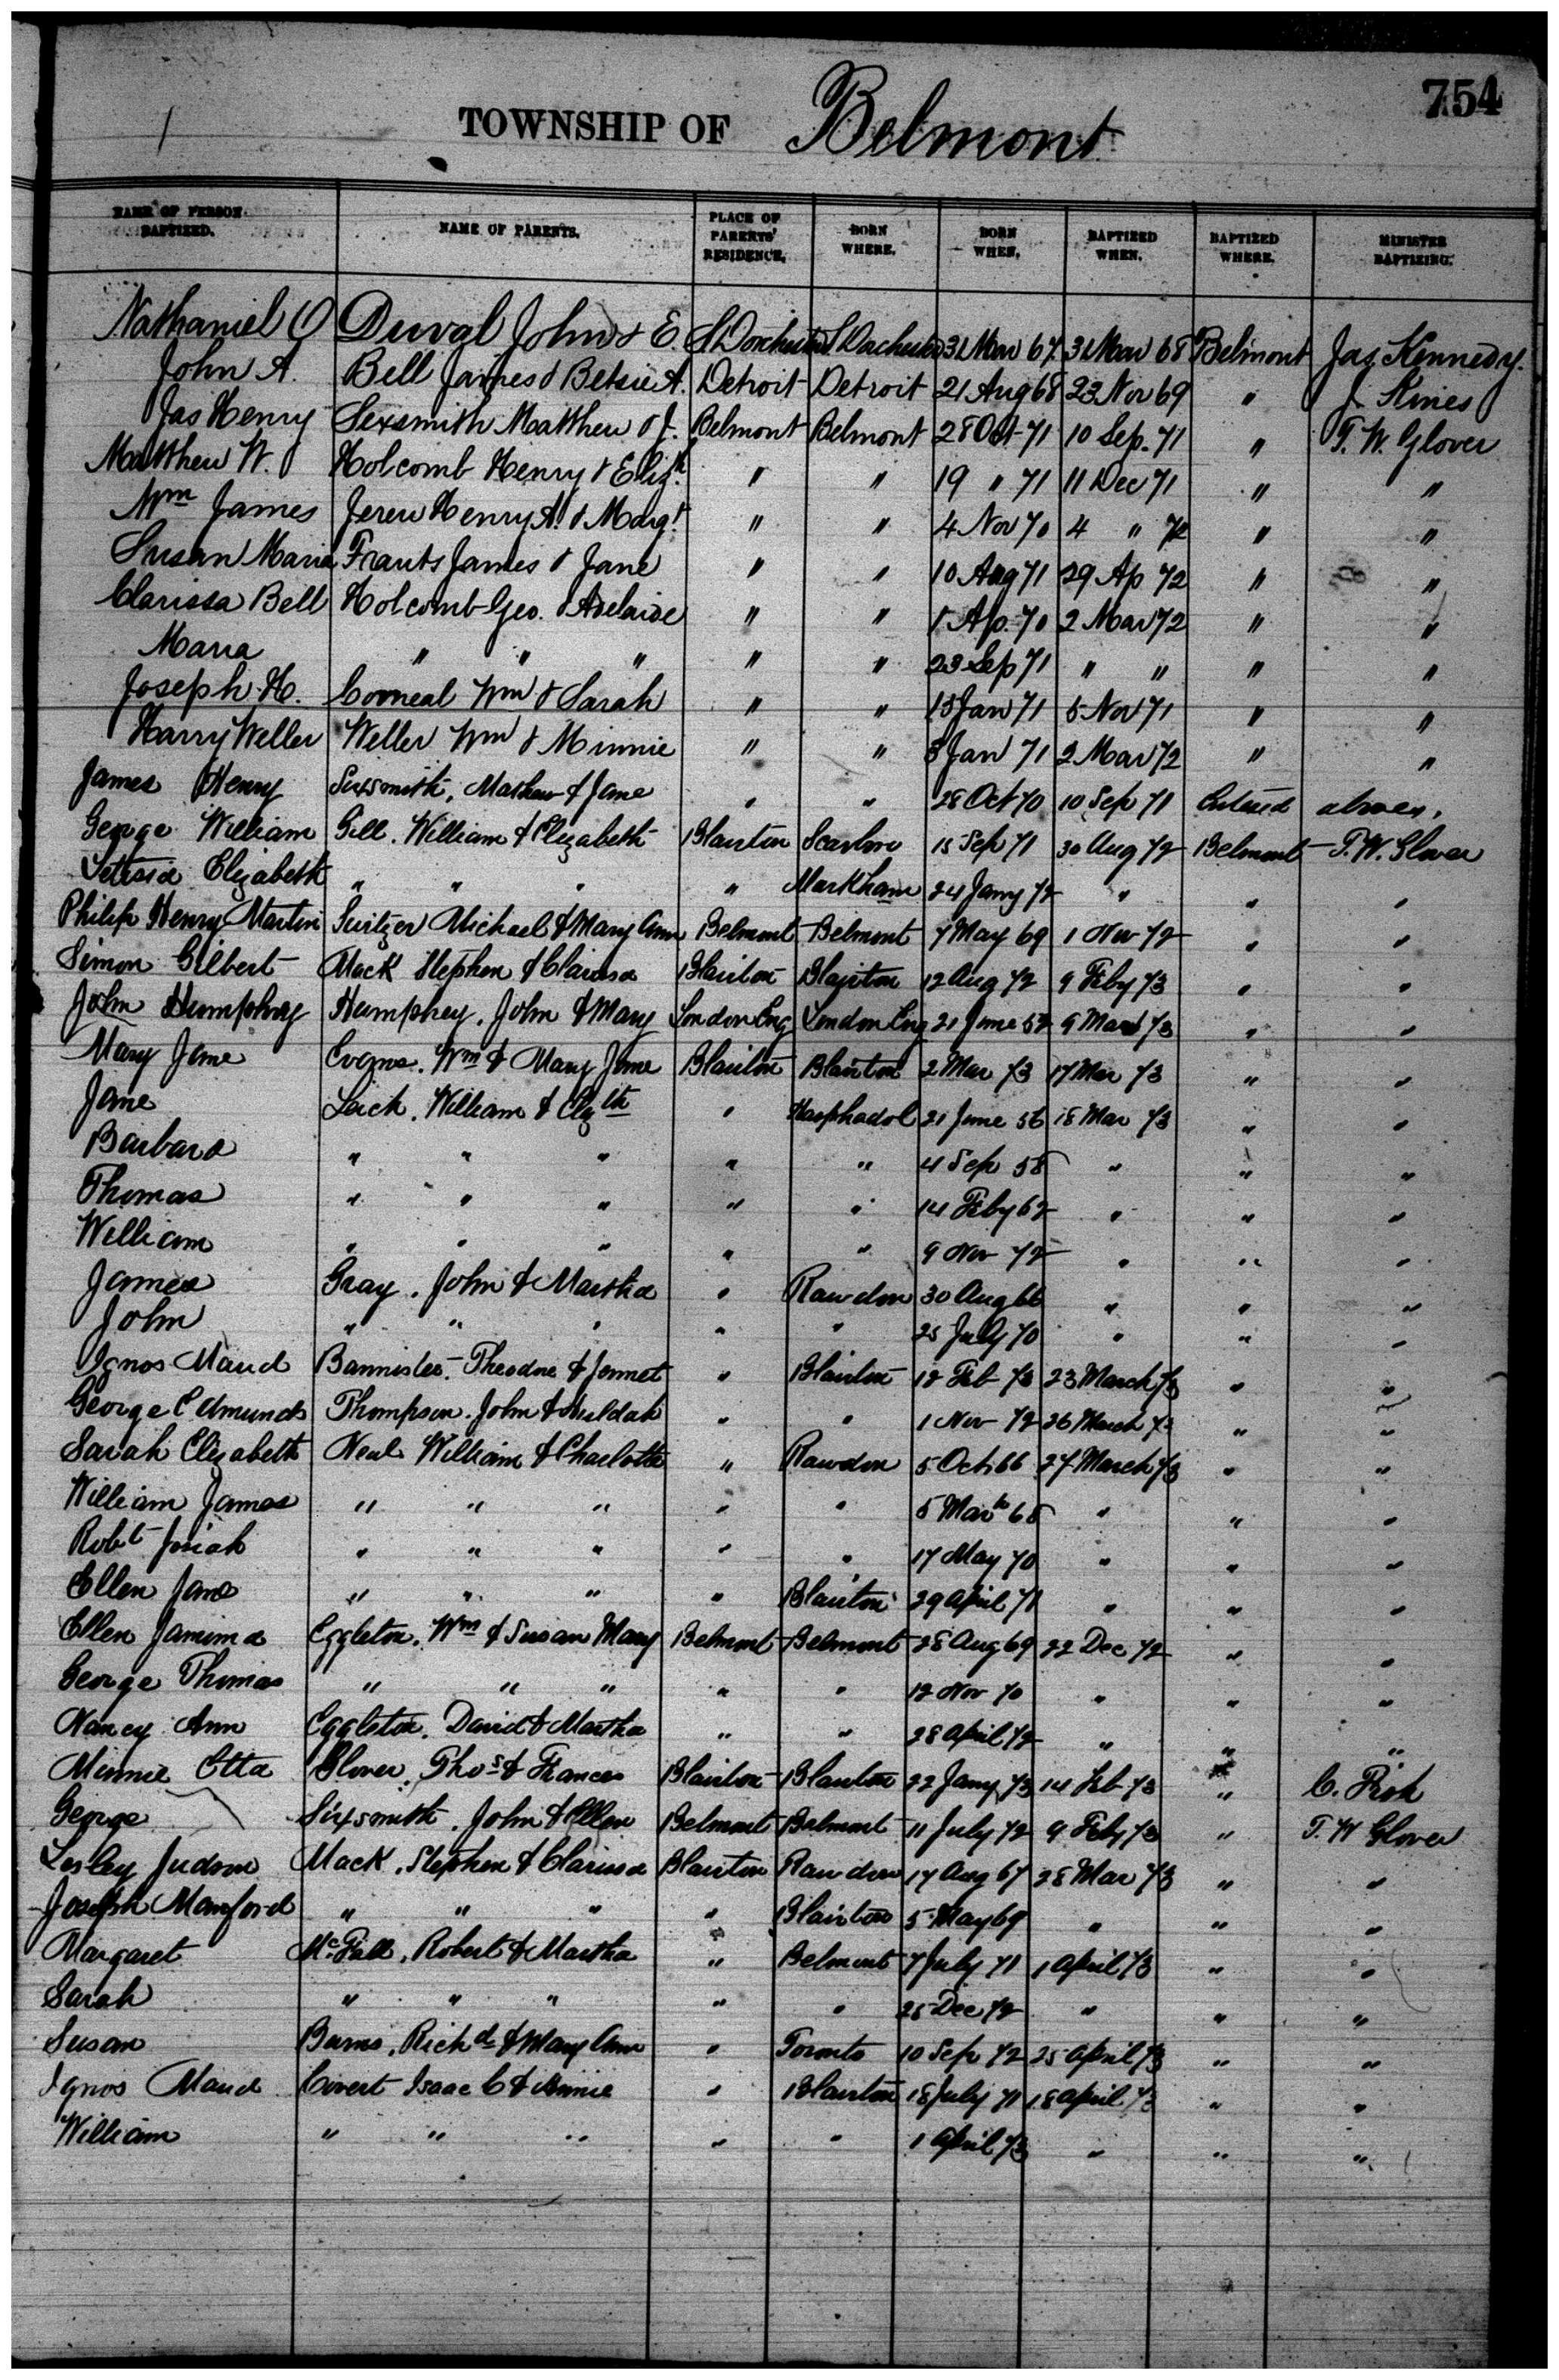 754
TOWNSHIP OF Belmont
NAME OF PERSON BAPTIZED. NAME OF PARENTS. PLACE OF PARENTS' RESIDENCE. BORN WHERE. BORN WHEN. BAPTIZED WHEN. BAPTIZED WHERE. MINISTER BAPTIZING.
Nathaniel O Duval John & E. S Dorchester S Dorchester 31 Mar 67 3 Mar 68 Belmont Jas Kennedy.
John A. Bell James & Betsie A. Detroit Detroit 21 Aug 68 23 Nov 69 " J. Kines
Jas Henry Sexsmith Matthew & J. Belmont Belmont 28 Oct 71 10 Sep. 71 " T. W. Glover
Matthew W. Holcomb Henry & Elizth " " 19 " 71 11 Dec 71 " "
Wm James Henry A. & Margt " " 4 Nov 70 4 " 72 " "
Susan Maria Frants James & Jane " " 10 Aug 71 29 Ap 72 " "
Clarissa Bell Holcomb Geo. & Adelaide " " 1 Ap. 70 2 Mar 72 " "
Maria " " " " " 23 Sep 71 " " " "
Joseph H. Corneal Wm & Sarah " " 13 Jan 71 5 Nov 71 " "
Harry Weller Weller Wm & Minnie " " 3 Jan 71 2 Mar 72 " "
James Henry Sixsmith, Mathew & Jane " " 28 Oct 70 10 Sep 71 Entered above.
George William Gill. William & Elizabeth Blairton Scarboro 15 Sep 71 30 Aug 72 Belmont T. W. Glover
Letitsia Elizabeth " " " " Markham 24 Jany 72 " " "
Philip Henry Martin Switzer Michael & Mary Ann Belmont Belmont 7 May 69 1 Nov 72 " "
Simon Gilbert Mack Stephen & Clarissa Blairton Blairton 12 Aug 72 9 Feby 73 " "
John Humphrey Humphrey, John & Mary London Eng London Eng 21 June 52 9 Mar 73 " "
Mary Jane Evans. Wm & Mary Jane Blairton Blairton 2 Mar 73 17 Mar 73 " "
Jane Lack. William & Elzth " Asphodol 21 June 56 18 Mar 73 " "
Barbara " " " " " 4 Sep 58 " " "
Thomas " " " " " 14 Feby 62 " " "
William " " " " " 9 Nov 72 " " "
James Gray. John & Martha " Rawdon 30 Aug 66 " " "
John " " " " " 25 July 70 " " "
Agnes Maud Bannister. Theodore & Jennet " Blairton 12 Feb 73 23 March 73 " "
George Edmunds Thompson. John & Huldah " " 1 Nov 72 26 March 73 " "
Sarah Elizabeth Neal William & Charlotte " Rawdon 5 Oct 66 27 March 73 " "
William James " " " " " 5 Marh 68 " " "
Robt Josiah " " " " " 17 May 70 " " "
Ellen Jane " " " " Blairton 29 April 71 " " "
Ellen Jamima Eggleton. Wm & Susan Mary Belmont Belmont 28 Aug 69 22 Dec 72 " "
George Thomas " " " " " 12 Nov 70 " " "
Nancy Ann Eggleton. David & Martha " " 28 April 72 " " "
Minnie Etta Glover. Thos & Frances Blairton Blairton 22 Jany 73 14 Feb 73 " C. Fish
George Sixsmith. John & Ellen Belmont Belmont 11 July 72 9 Feby 73 " T. W Glover
Lesley Judson Mack. Stephen & Clarissa Blairton Rawdon 17 Aug 67 28 Mar 73 " "
Joseph Manford " " " " Blairton 5 May 69 " " "
Margaret McFall. Robert & Martha " Belmont 7 July 71 1 April 73 " "
Sarah " " " " " 25 Dec 72 " " "
Susan Burns, Richd & Mary Ann " Toronto 10 Sep 72 25 April 73 " "
Agnes Maud Covert Isaac C & Annie " Blairton 18 July 71 18 April 73 " "
William " " " " " 1 April 73 " " "